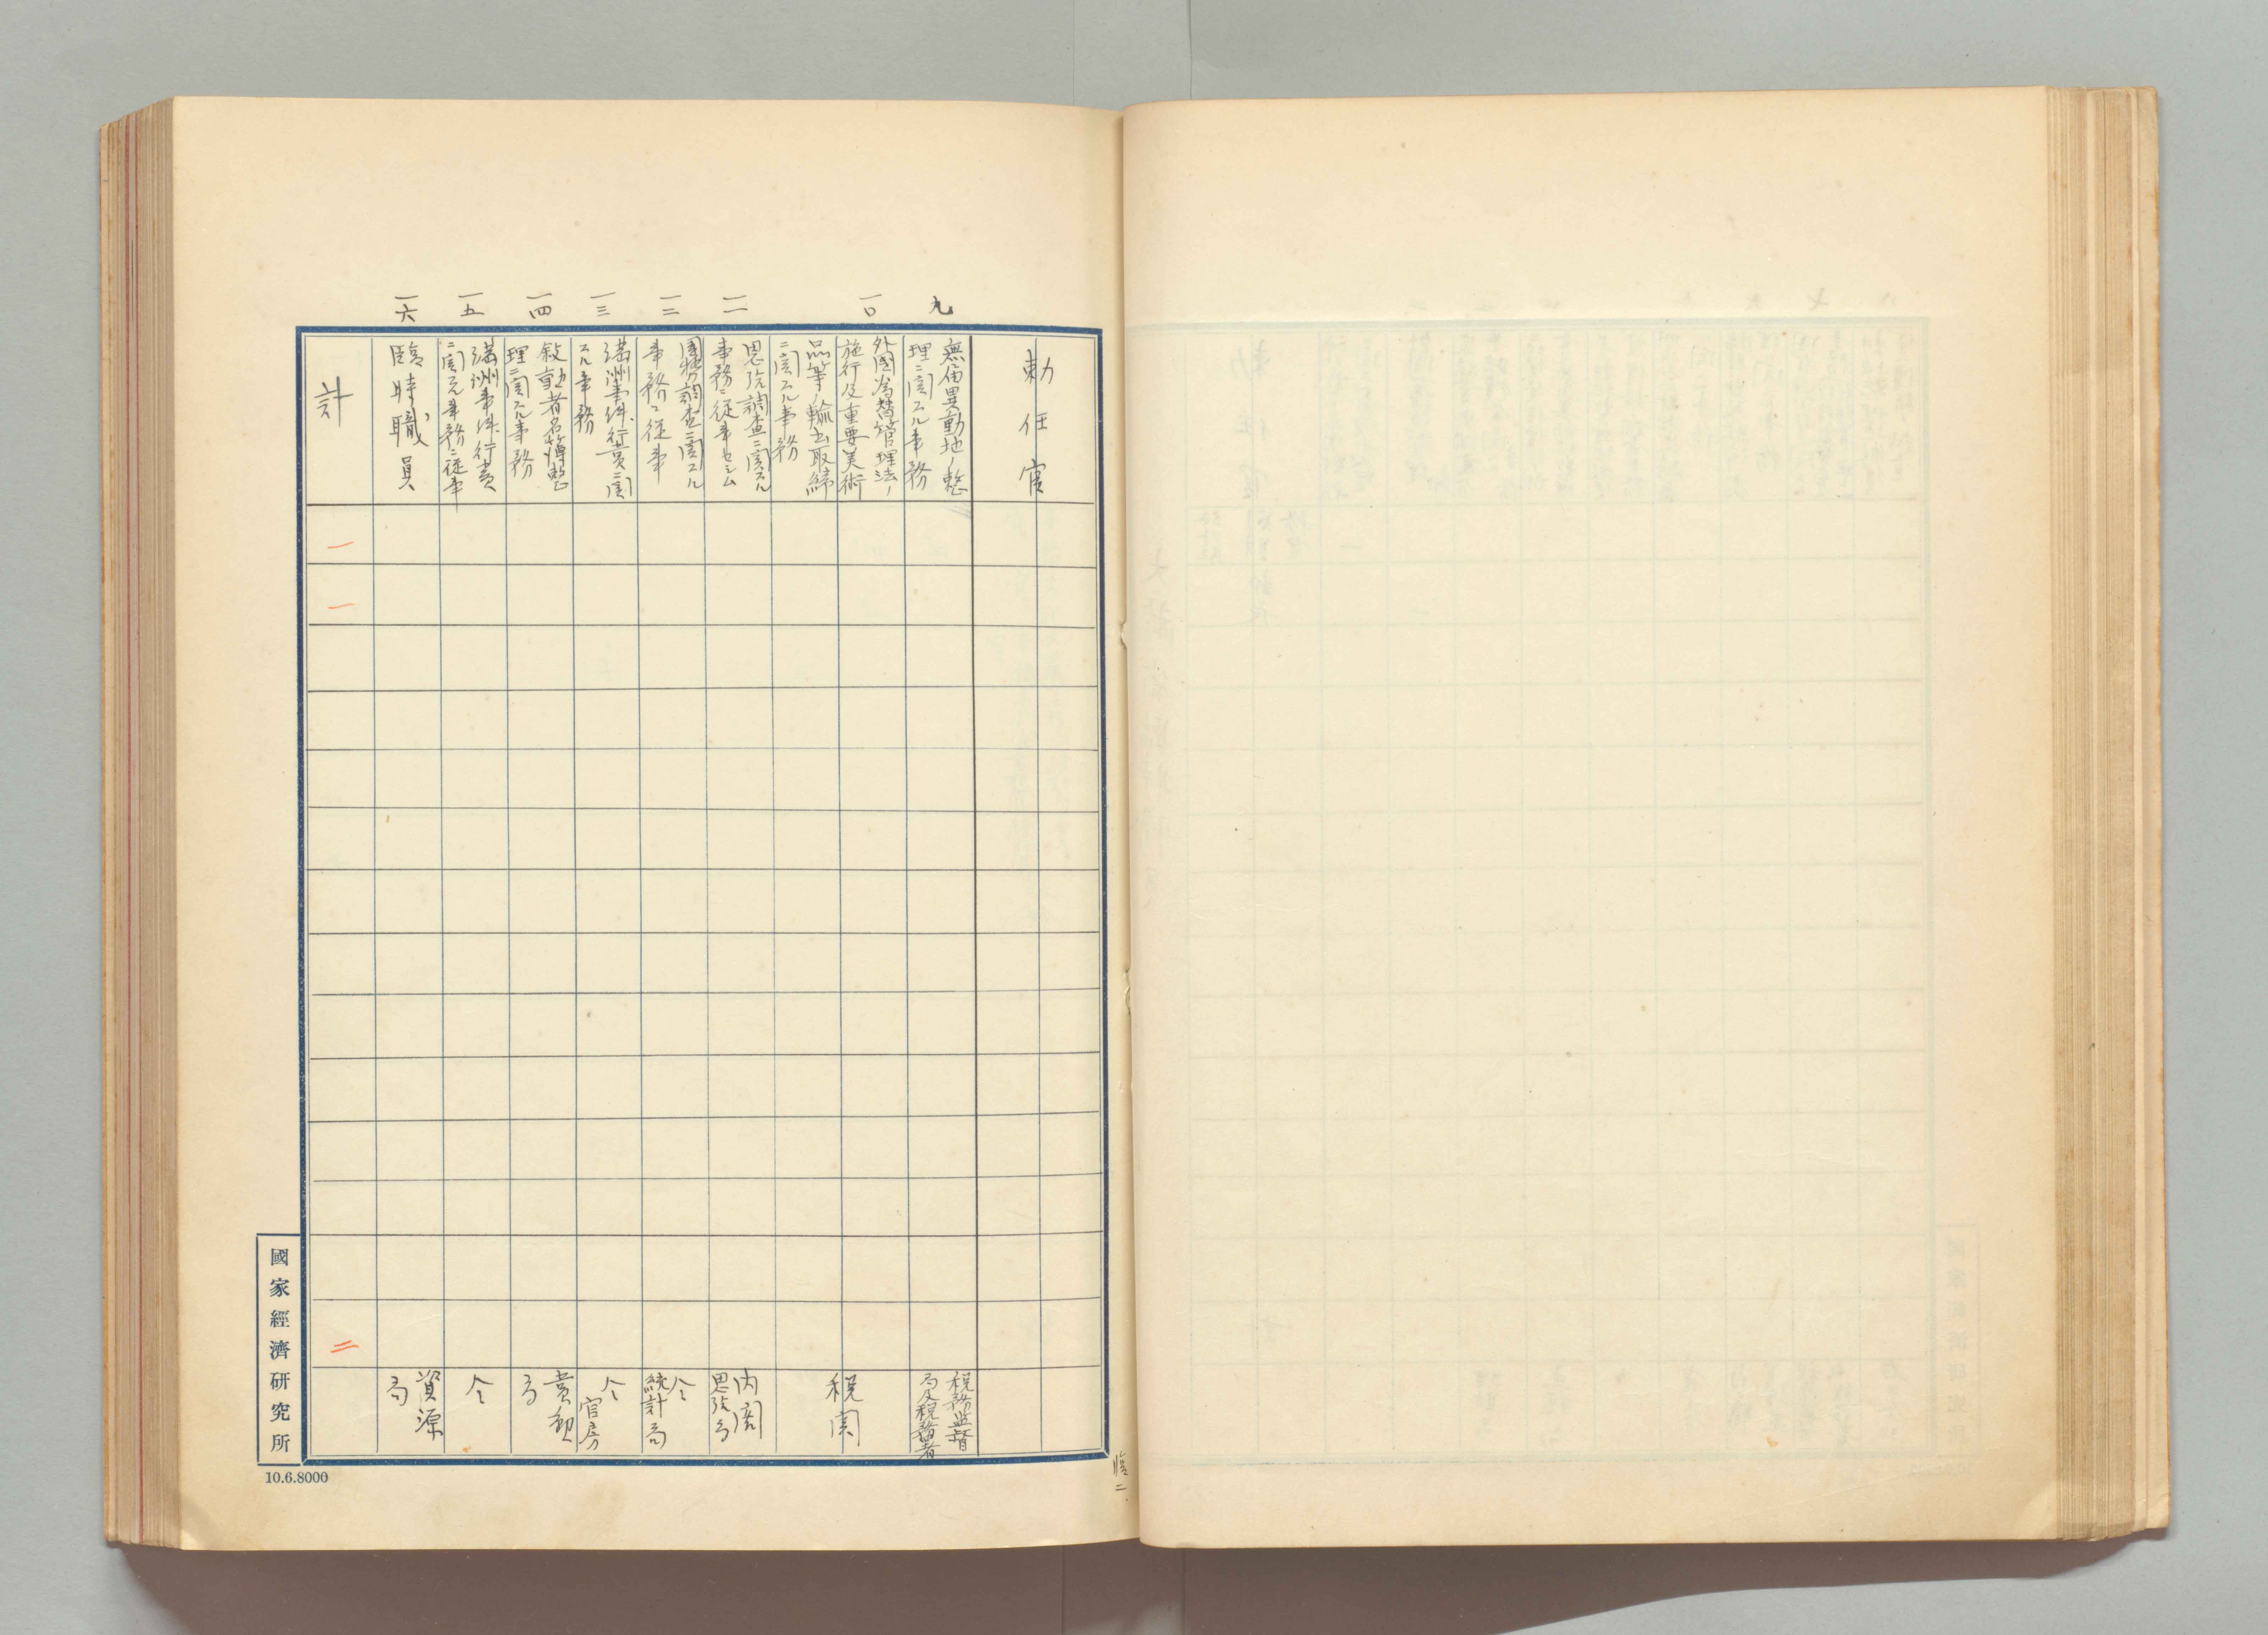 勅任官
九
無届異動地ノ整
理ニ関スル事務
税務監督
局及税務署
一〇
外国為替管理法ノ
施行及重要美術
品等ノ輸出取締
ニ関スル事務
税関
一一
恩給調査ニ関スル
事務ニ従事セシム
内閣
恩給局
一二
国勢調査ニ関スル
事務ニ従事
仝
統計局
一三
満洲事件行賞ニ関
スル事務
仝
官房
一四
叙勲者名簿整
理ニ関スル事務
賞勲
局
一五
満洲事件行賞
ニ関スル事務ニ従事
仝
一六
臨時職員
資源
局
計
一
一
二
國家經濟研究所
10.6.8000
臨二